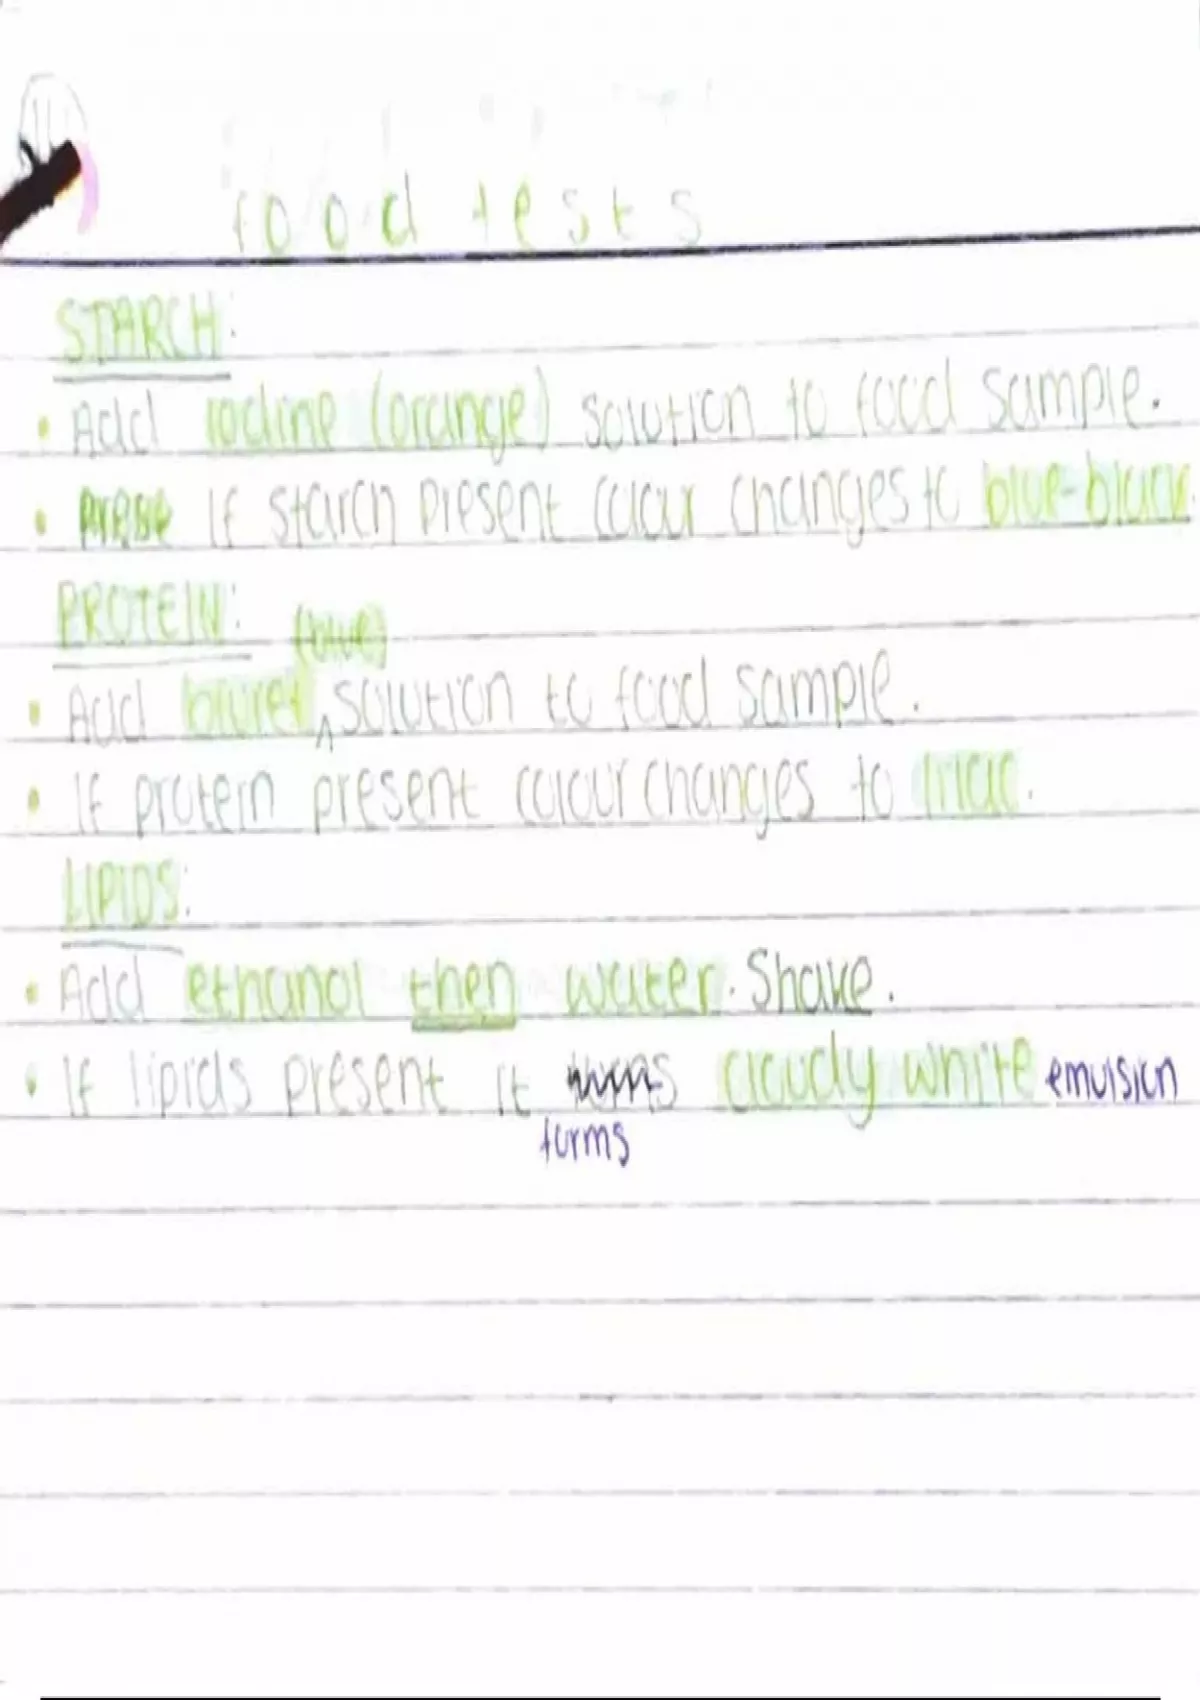 food tests
STARCH:
• Add iodine (orange) solution to food sample.
• prese If starch present colour changes to blue-black.
PROTEIN:
(blue)
• Add biuret ^ solution to food sample.
• If protein present colour changes to lilac.
LIPIDS:
• Add ethanol then water. Shake.
• If lipids present it turns cloudy white emulsion
forms